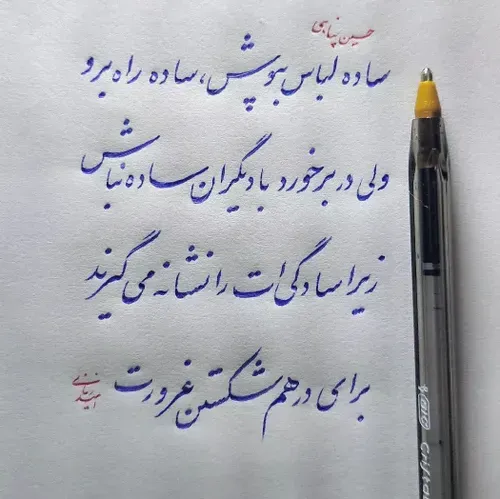 حسین پناهی
ساده لباس بپوش، ساده راه برو
ولی در برخورد با دیگران ساده نباش
زیرا سادگی ات را نشانه می گیرند
برای درهم شکستن غرورت